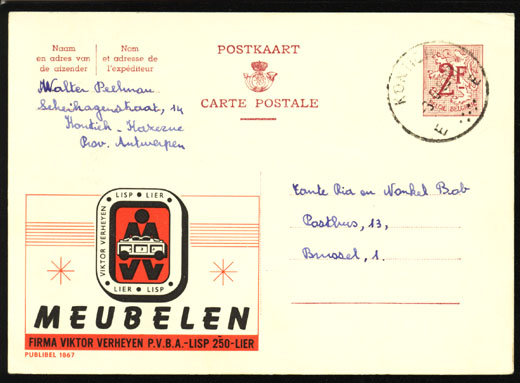 Naam
en adres van
de afzender
Nom
et adresse de
l'expéditeur
POSTKAART
CARTE POSTALE
2F
BELGIE-BELGIQUE
Walter Peelman
14
Kontich - Kazerne
Prov. Antwerpen
Tante Ria en Nonkel Bob
Posthus, 13,
Brussel, 1.
LISP • LIER
VIKTOR VERHEYEN
LIER • LISP
MEUBELEN
FIRMA VIKTOR VERHEYEN P.V.B.A.-LISP 250-LIER
PUBLIBEL 1867